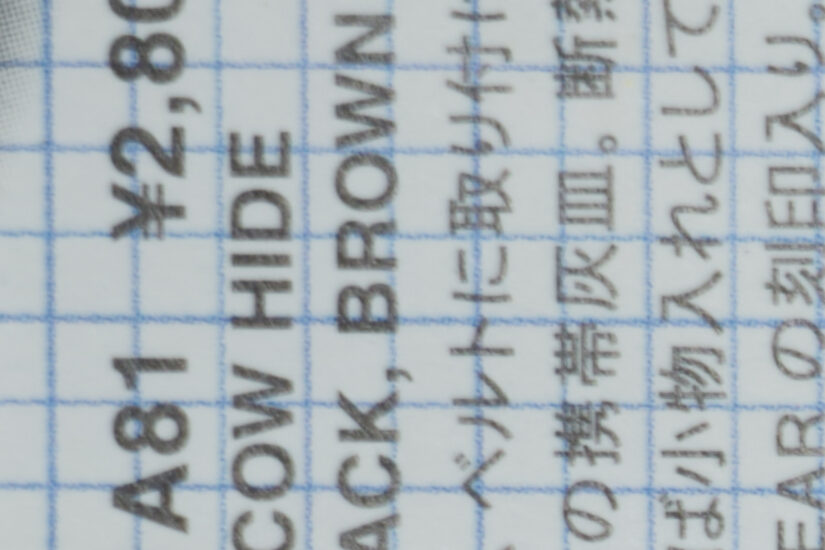 A81 ¥2,80
COW HIDE
ACK, BROWN
ベルトに取り付け
の携帯灰皿。断
ば小物入れとして
EAR の刻印入り。